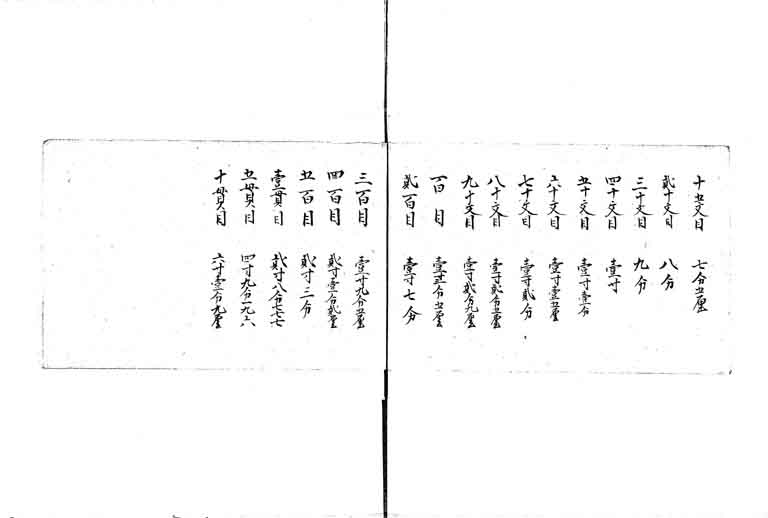 十五文目 七分五厘
貳十文目 八分
三十文目 九分
四十文目 壹寸
五十文目 壹寸壹分
六十文目 壹寸壹五厘
七十文目 壹寸貳分
八十文目 壹寸貳分五厘
九十文目 壹寸貳分九厘
百目 壹寸三分五厘
貳百目 壹寸七分
三百目 壹寸九分五厘
四百目 貳寸壹分貳厘
五百目 貳寸三分
壹貫目 貳寸八分七七七
五貫目 四寸九分一九六
十貫目 六寸壹分九厘